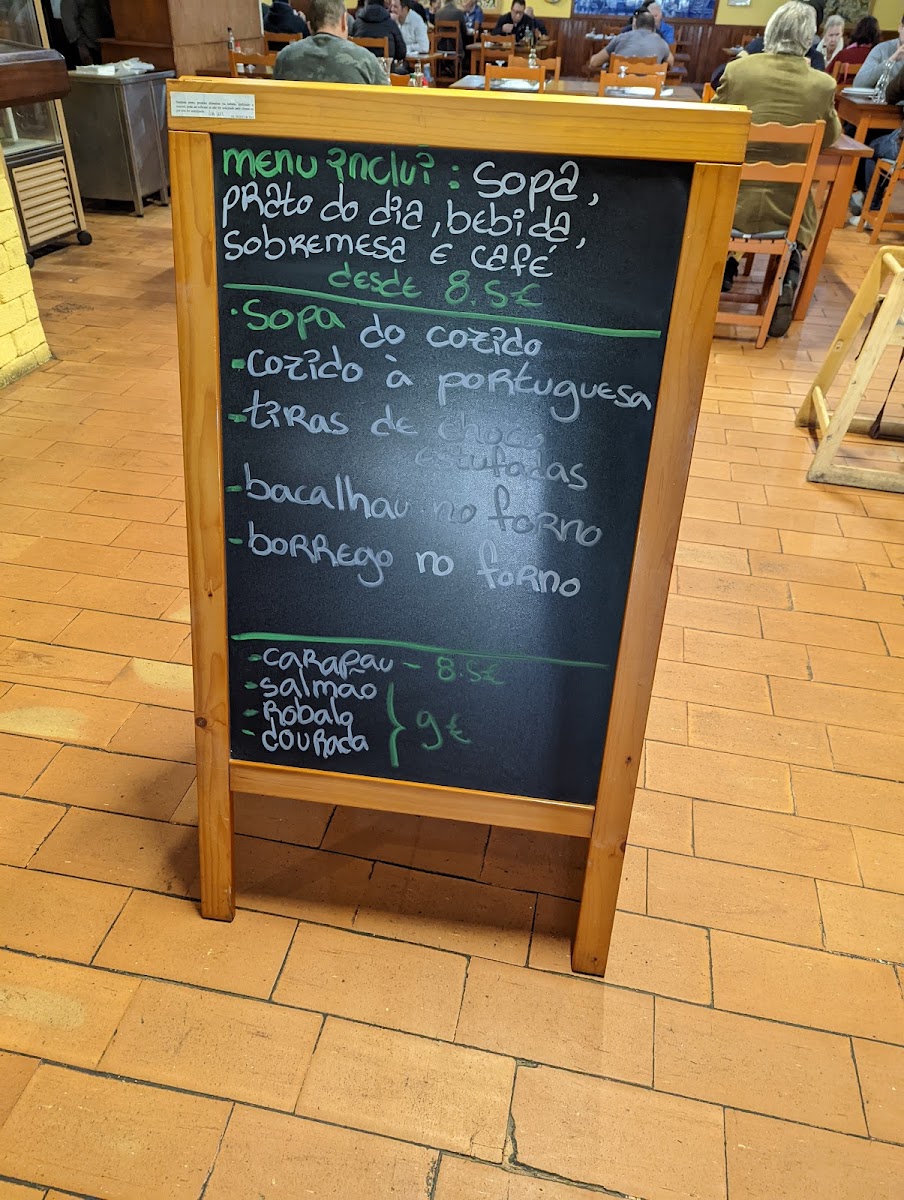 menu inclui: Sopa,
prato do dia, bebida,
sobremesa e café
desde 8.5€
·Sopa do cozido
-cozido à portuguesa
-tiras de choco
estufadas
-bacalhau no forno
-borrego no forno
-carapau - 8.5€
-salmão
-Robalo } 9€
-dourada